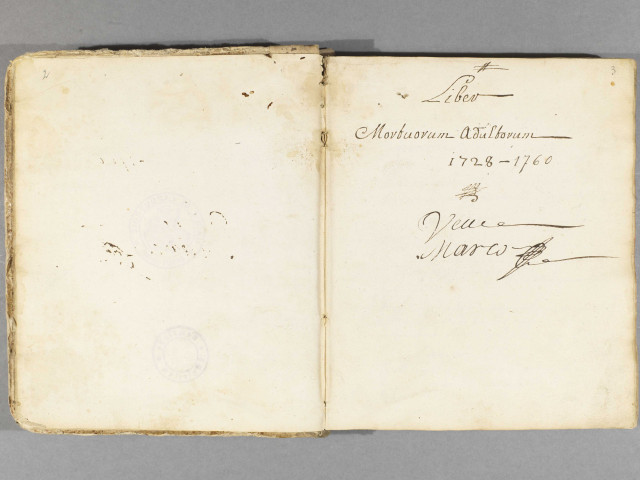 2
3
Liber
Mortuorum Adultorum
1728-1760
Marco